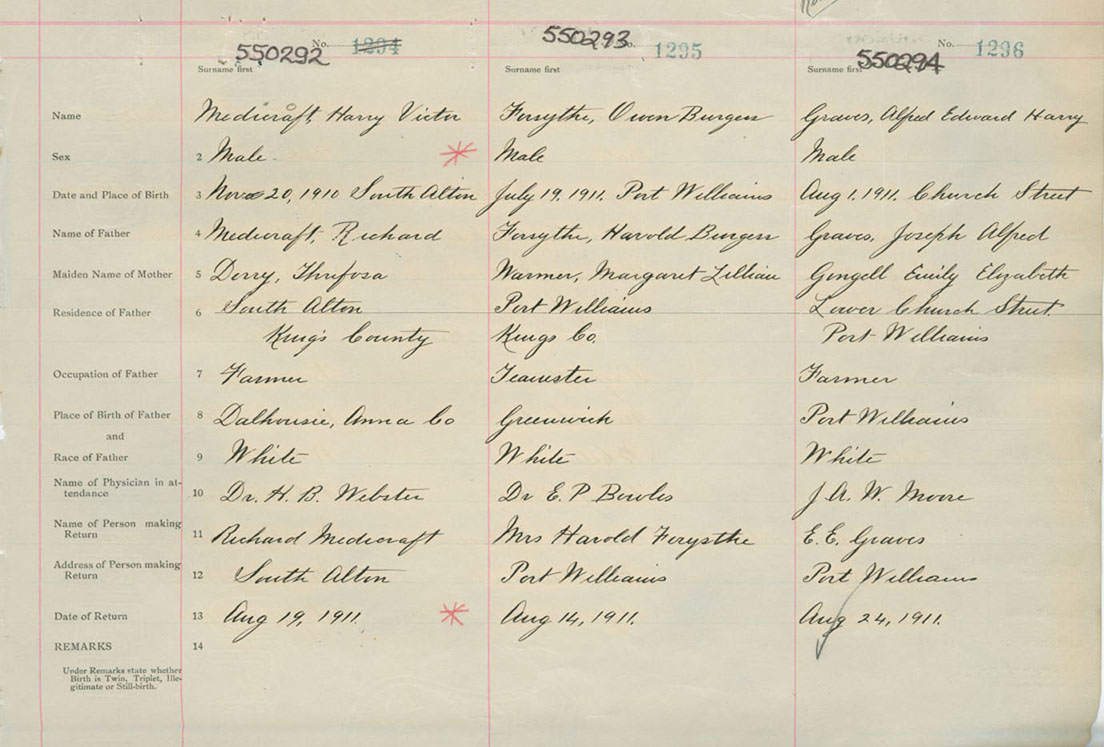 550292 No. 1294 550293 No. 1295 550294 No. 1296
Surname first Surname first Surname first
Name Medicraft, Harry Victor Forsythe, Owen Burgess Graves, Alfred Edward Harry
Sex 2 Male Male Male
Date and Place of Birth 3 Nov 20, 1910 South Alton July 19, 1911. Port Williams Aug 1, 1911. Church Street
Name of Father 4 Medicraft, Richard Forsythe, Harold Burgess Graves, Joseph Alfred
Maiden Name of Mother 5 Dorry, Thrifosa Warner, Margaret Lillian Gengell Emily Elizabeth
Residence of Father 6 South Alton Port Williams Lower Church Street
King's County Kings Co. Port Williams
Occupation of Father 7 Farmer Teamster Farmer
Place of Birth of Father 8 Dalhousie, Anna Co Greenwich Port Williams
and
Race of Father 9 White White White
Name of Physician in at-
tendance 10 Dr. H. B. Webster Dr E. P Bowles J. A. W. Moore
Name of Person making
Return 11 Richard Medicraft Mrs Harold Forysthe E. E. Graves
Address of Person making
Return 12 South Alton Port Williams Port Williams
Date of Return 13 Aug 19, 1911. Aug 14, 1911. Aug 24, 1911.
REMARKS 14
Under Remarks state whether
Birth is Twin, Triplet, Ille-
gitimate or Still-birth.